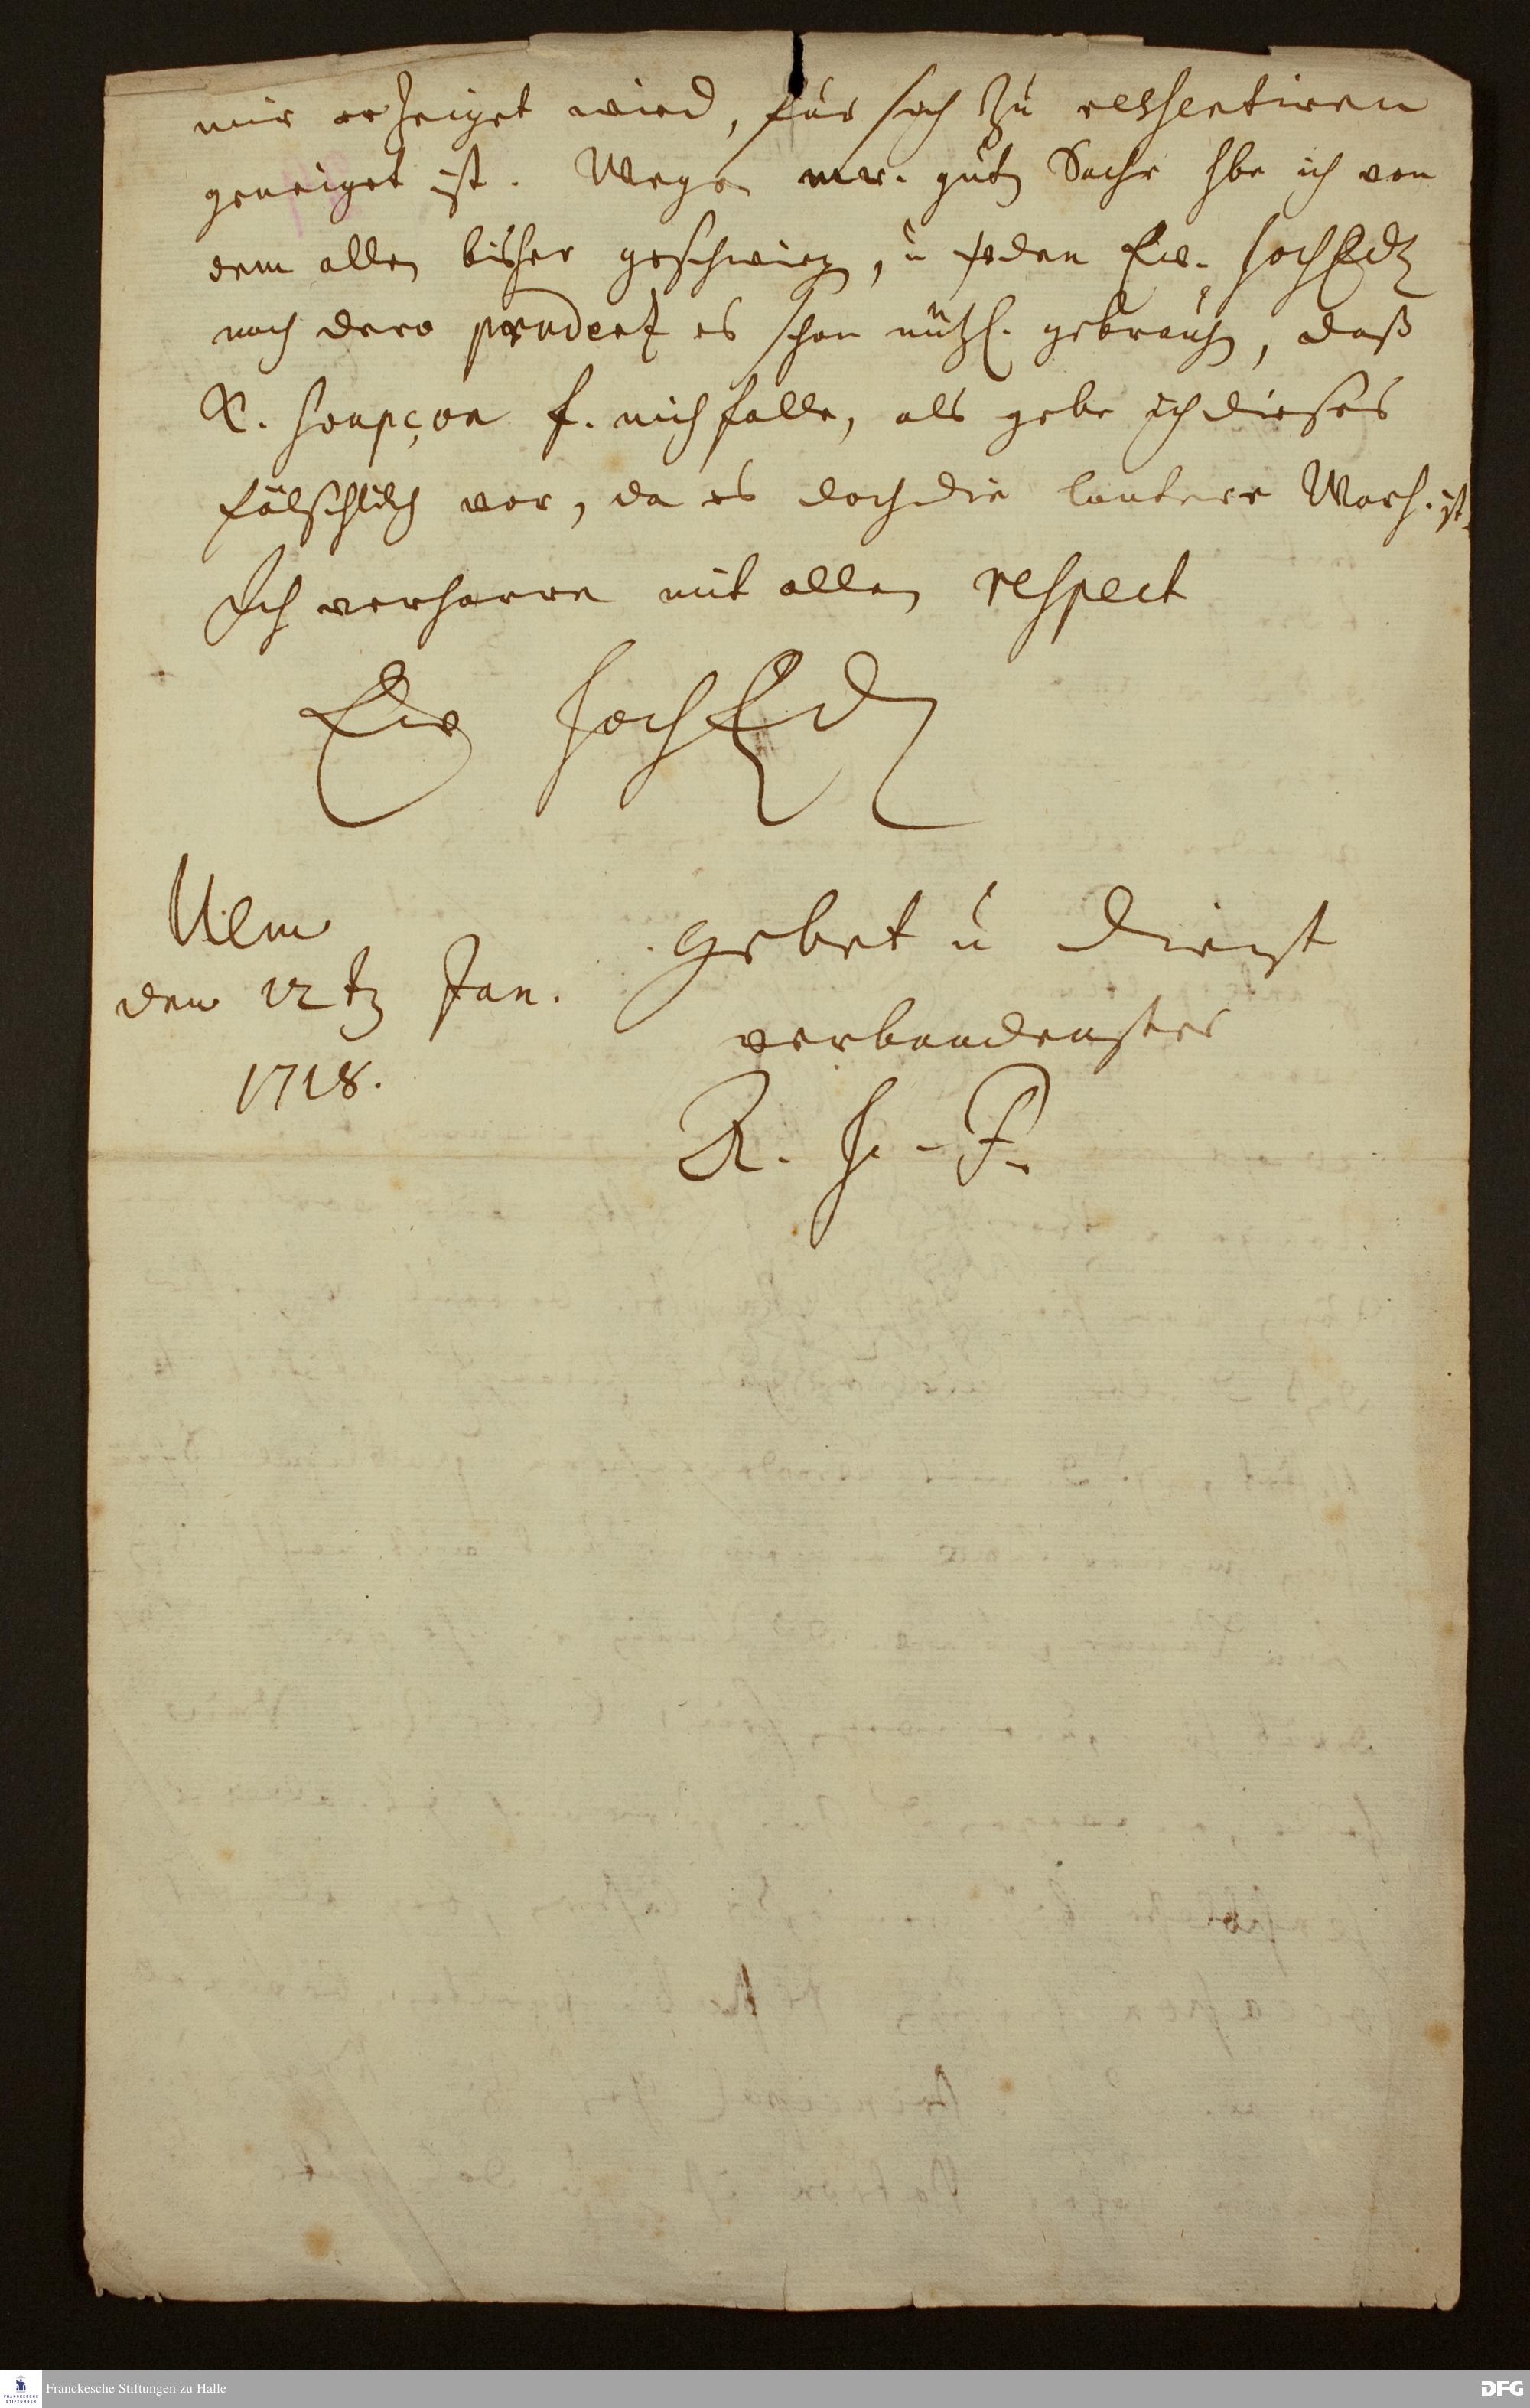 mir erzeiget wird, für sich zu ressentiren
geneiget ist. Wegen mr. gutn Sache hbe ich von
dem allen bisher geschwiegen, u Ew. HochEdl
nach dero prudenz es schon nützl. gebrauchen, daß
K. soupçon f. mich falle, als gebe ich dieses
fälschlich vor, da es doch die lautere Warh. ist.
Ich verharre mit allen respect
Ew HochEdl
Ulm
den 12 tn Jan.
1718.
gebet u dienst
verbundenster
R. H. P.
Franckesche Stiftungen zu Halle
DFG